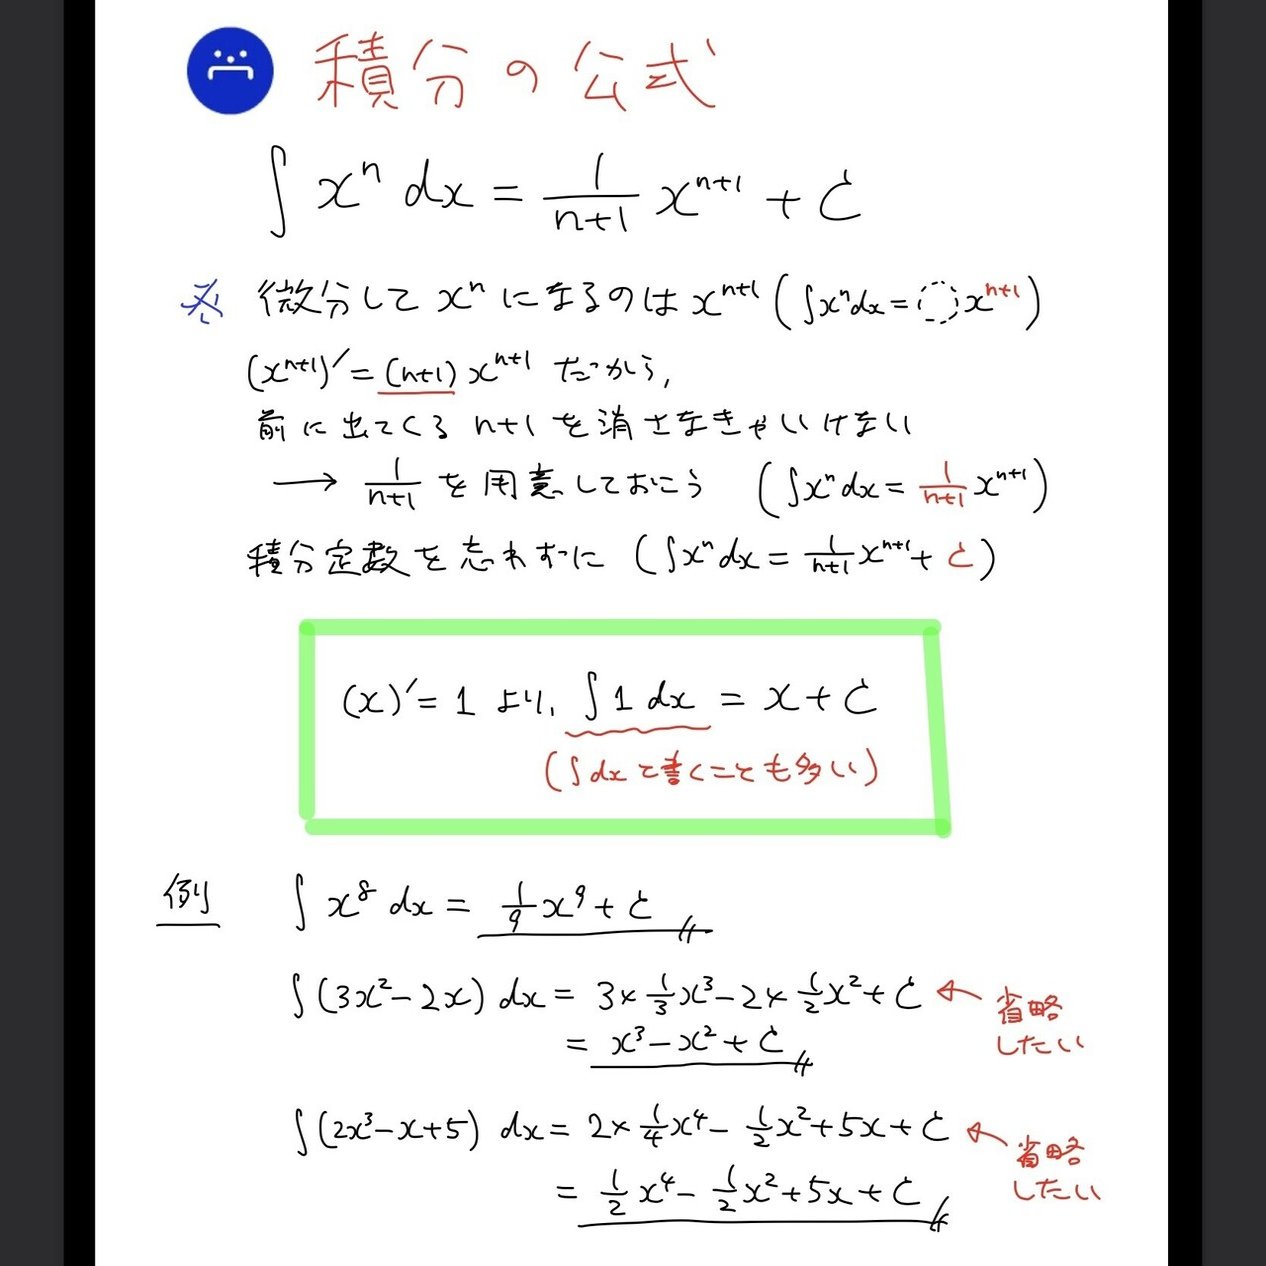 積分の公式
∫ xⁿ dx = 1/(n+1) xⁿ⁺¹ + C
微分して xⁿ になるのは xⁿ⁺¹ (∫xⁿdx = ◌xⁿ⁺¹)
(xⁿ⁺¹)′ = (n+1) xⁿ⁺¹ だから,
前に出てくる n+1 を消さなきゃいけない
→ 1/(n+1) を用意しておこう (∫xⁿdx = 1/(n+1) xⁿ⁺¹)
積分定数を忘れずに (∫xⁿdx = 1/(n+1) xⁿ⁺¹ + C)
(x)′ = 1 より, ∫1 dx = x + C
(∫dx て書くことも多い)
例 ∫ x⁸ dx = 1/9 x⁹ + C
∫(3x² − 2x) dx = 3 × 1/3 x³ − 2 × 1/2 x² + C ← 省略
したい
= x³ − x² + C
∫(2x³ − x + 5) dx = 2 × 1/4 x⁴ − 1/2 x² + 5x + C ← 省略
したい
= 1/2 x⁴ − 1/2 x² + 5x + C